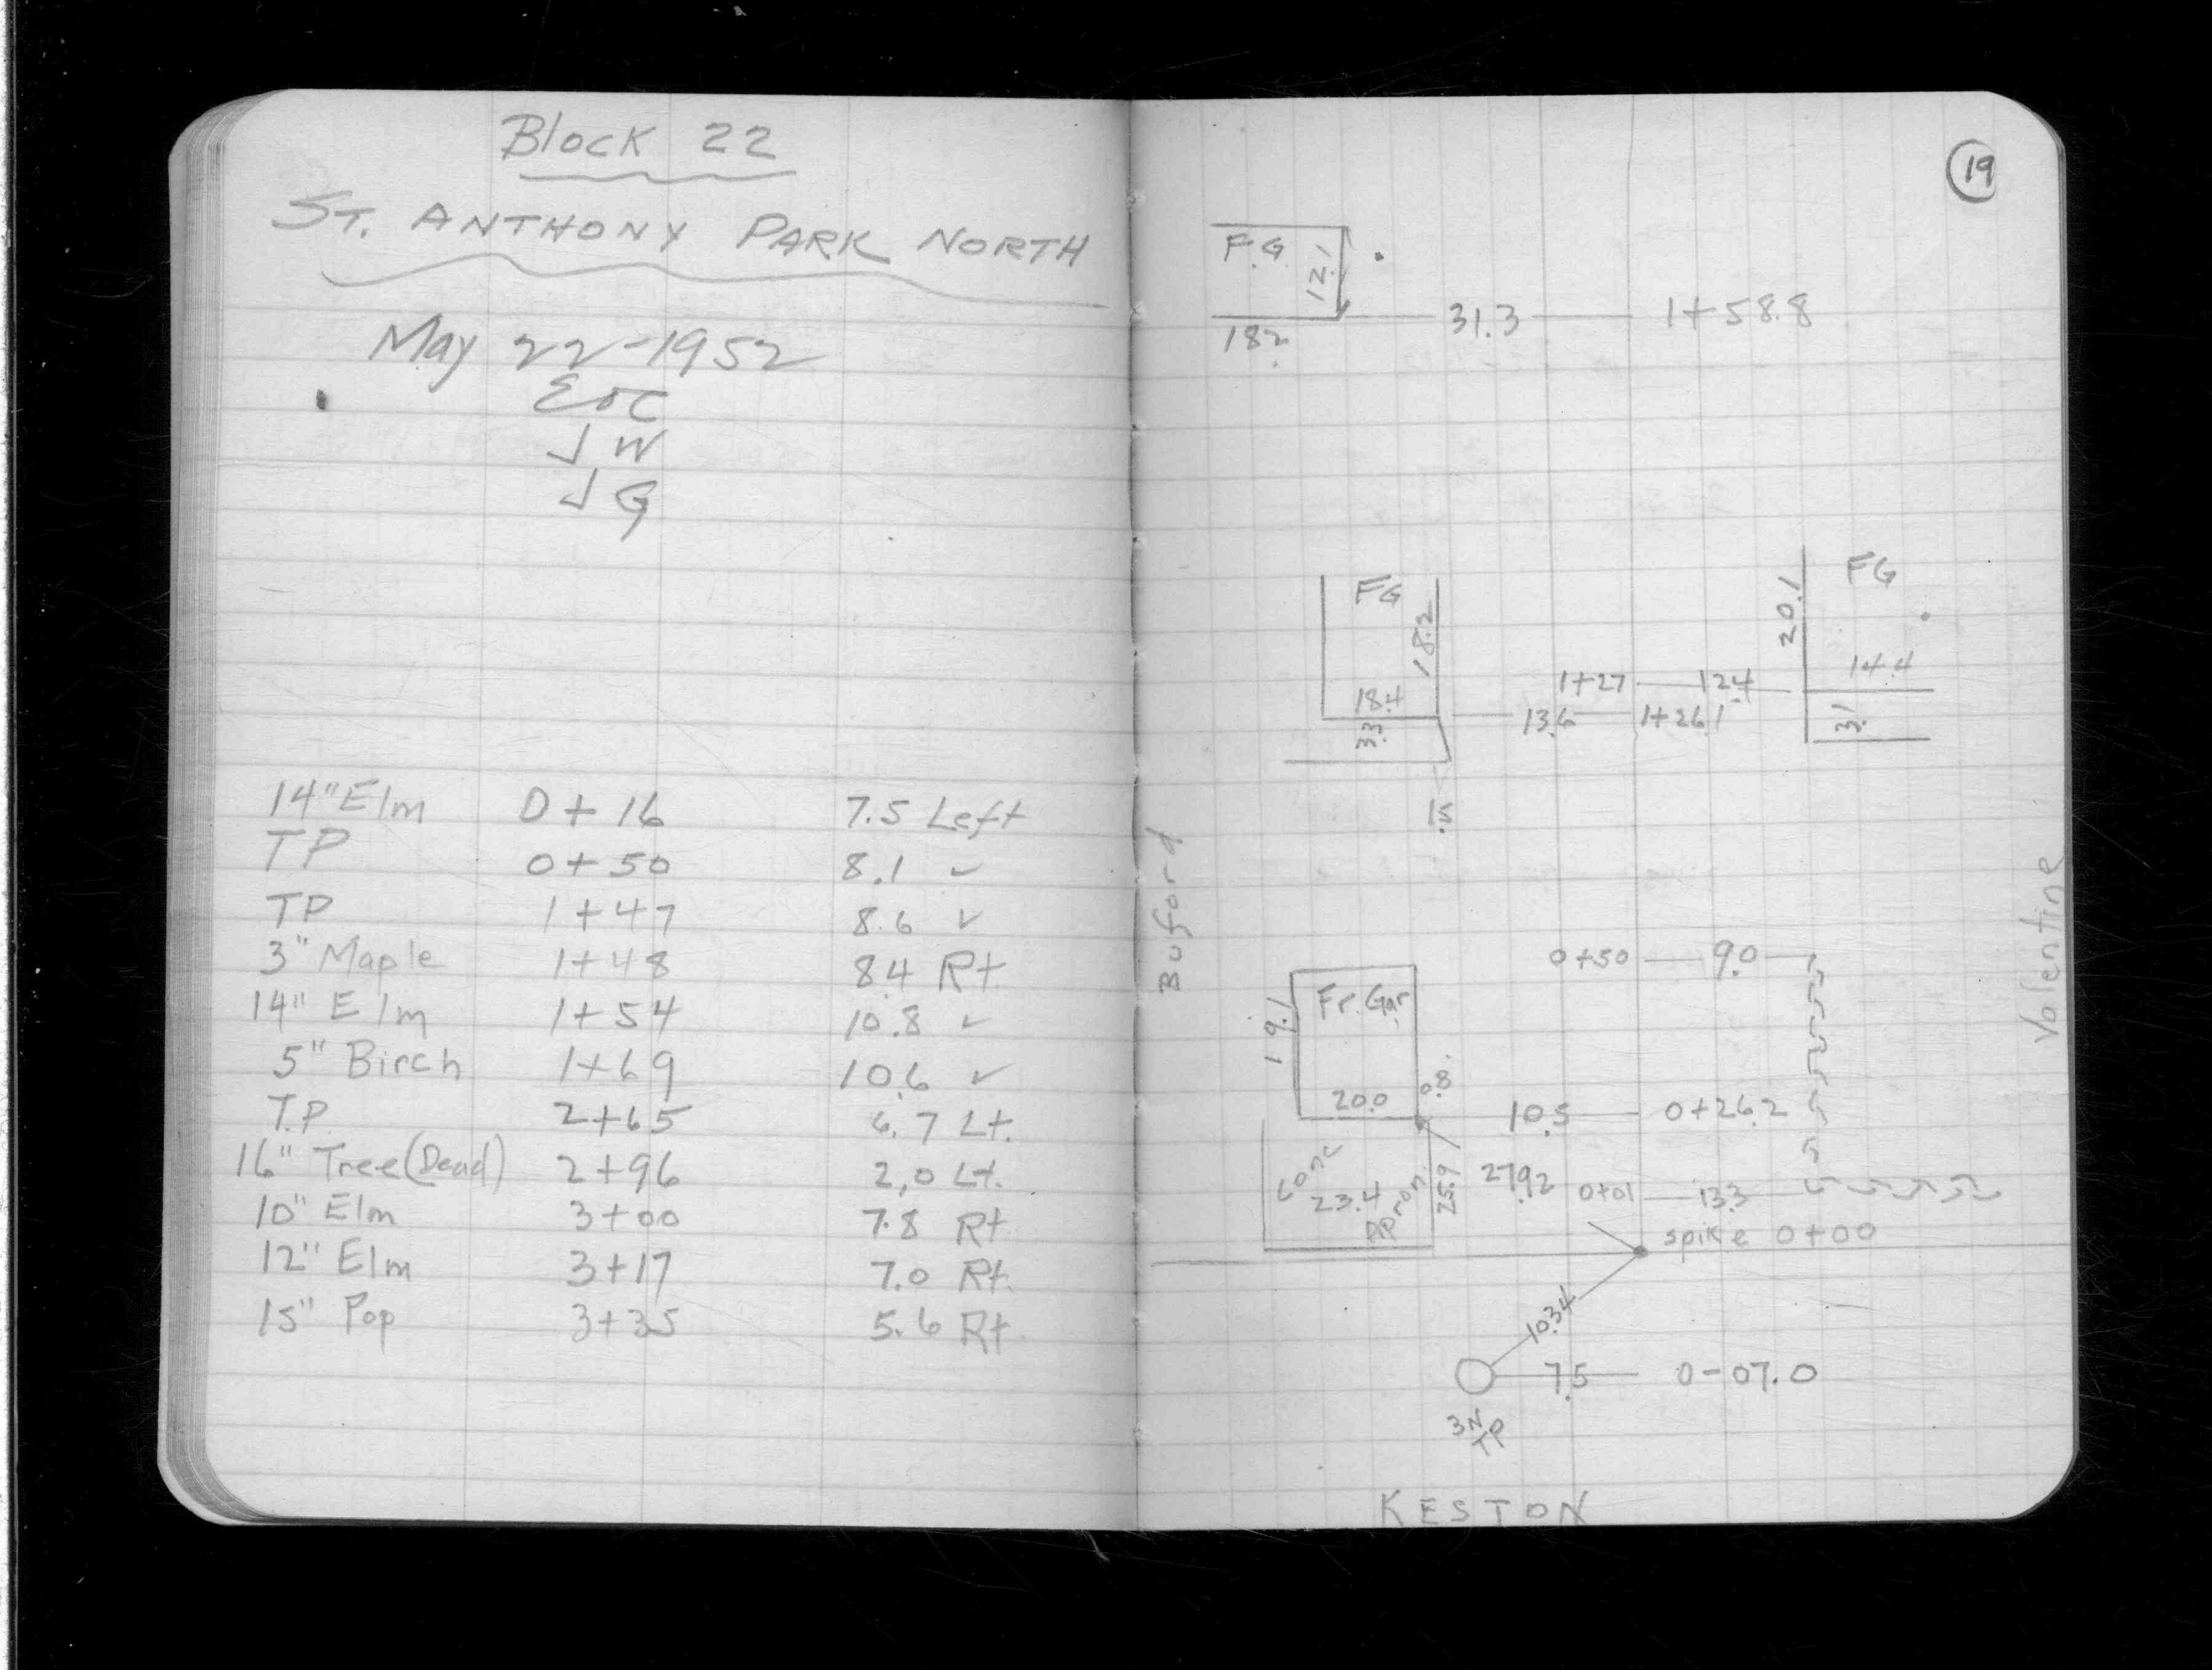 Block 22
ST. ANTHONY PARK NORTH
May 22-1952
EOC
JW
JG
14" Elm 0+16 7.5 Left
TP 0+50 8.1 ✓
TP 1+47 8.6 ✓
3" Maple 1+48 8.4 Rt.
14" Elm 1+54 10.8 ✓
5" Birch 1+69 10.6 ✓
T.P. 2+65 6.7 Lt.
16" Tree (Dead) 2+96 2.0 Lt.
10" Elm 3+00 7.8 Rt.
12" Elm 3+17 7.0 Rt.
15" Pop 3+35 5.6 Rt.
19
F.G. 12.1
31.3 1+58.8
18.2
FG FG
18.2 20.1
14.4
1+27 12.4
18.4
13.6 1+26.1
3.3 3.1
1.5
Buford
Valentine
0+50 9.0
Fr. Gar.
19.1
20.0 0.8
10.5 0+26.2
Conc Apron
23.4 25.9
27.92 0+01 13.3
spike 0+00
10.34
7.5 0-07.0
3N TP
KESTON